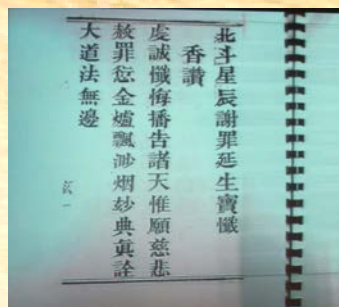 北斗星辰謝罪延生寶懺
香讚
虔誠懺悔播告諸天惟願慈悲
赦罪愆金爐飄渺烟玅典眞詮
大道法無邊